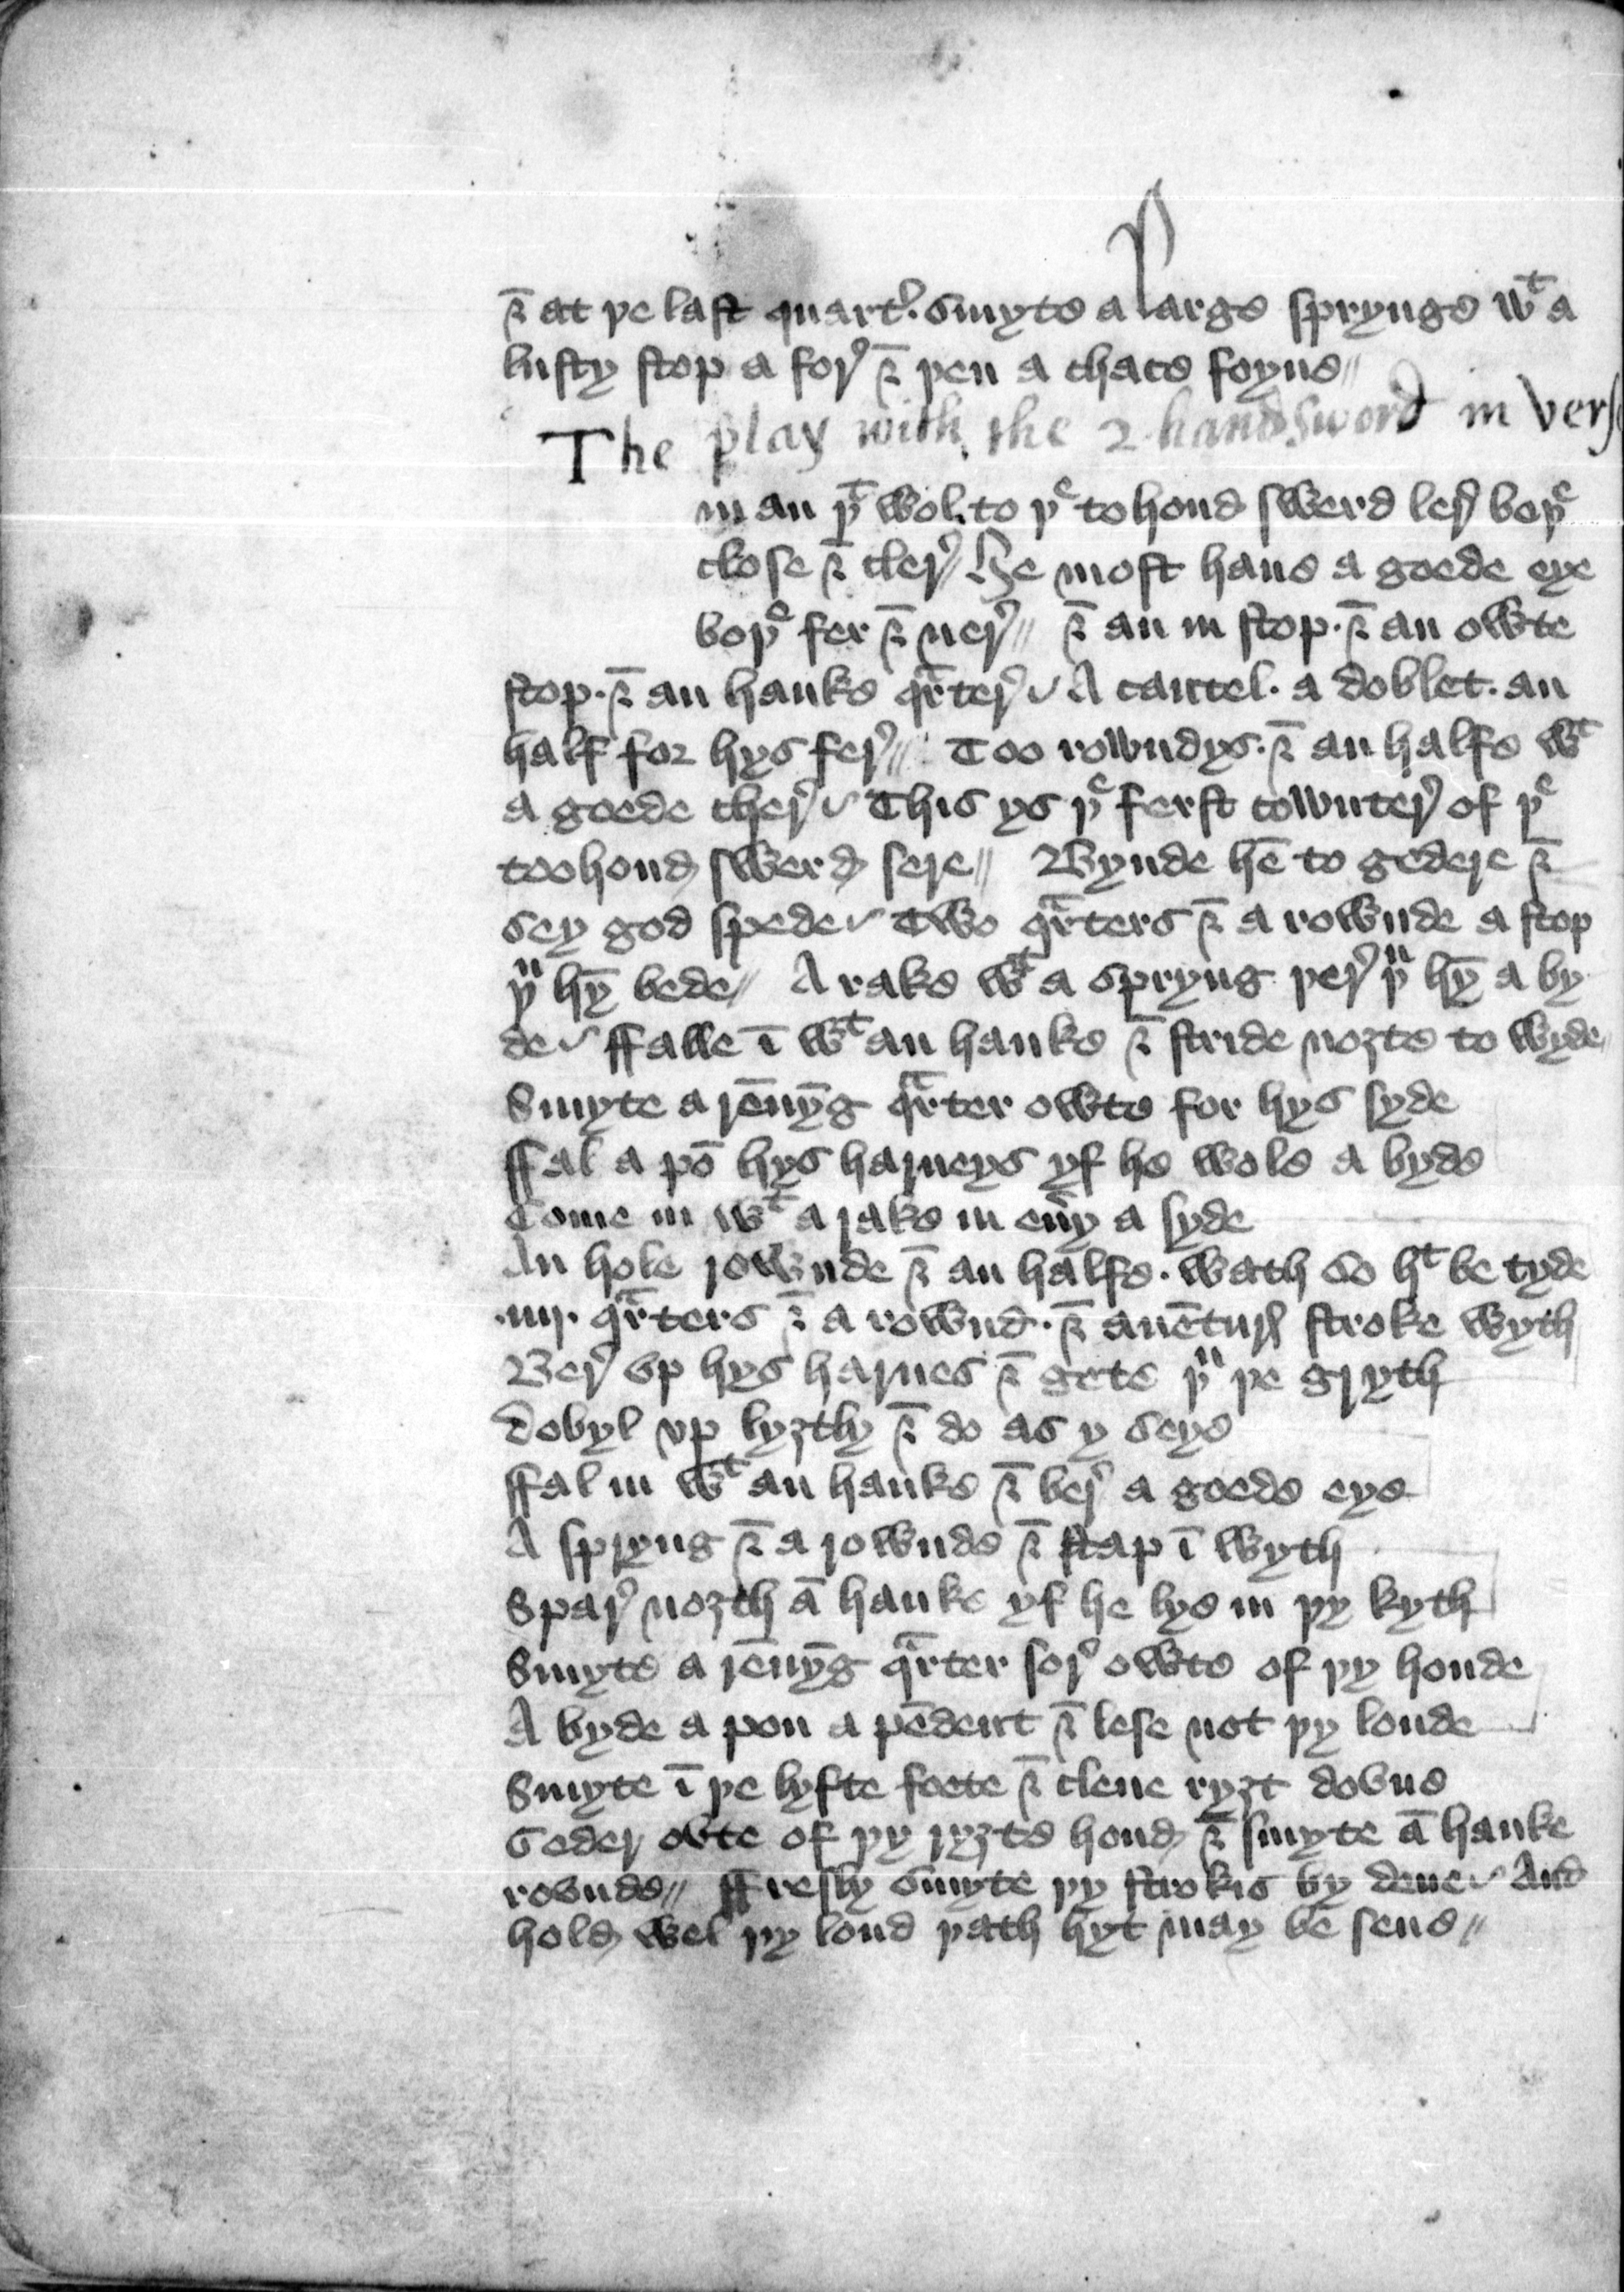 ⁊ at þe last quart̉. smyte a large sprynge wᵗ a
lusty stop a for̉ ⁊ þen a chace foyne//
The play with the 2 hand sword in vers
man þᵗ wol. to þᵉ to hond swerd ler̉ boþᵉ
close ⁊ cler̉/ He most haue a goede eye
boþᵉ fer ⁊ ner̉// ⁊ an in stop. ⁊ an owte
stop. ⁊ an hauke qᵃrter̉ A cantel. a doblet. an
half for hys fer̉// Too rowndys. ⁊ an halfe wᵗ
a goede cher̉ This ys þᵉ ferst cownter̉ of þᵉ
toohond swerd sere// Bynde hē to gedere ⁊
sey god spede Two qᵃrters ⁊ a rownde a stop
þᵘ hȳ bede// A rake wᵗ a spryng þer̉ þᵘ hȳ a by
de ffalle ī wᵗ an hauke ⁊ stride noȝte to wyde//
Smyte a rēnȳg qᵃrter owte for hys syde
ffal a pō hys harneys yf he wole a byde
Come in wᵗ a rake in eủy a syde
An hole rownde ⁊ an halfe. wath so hᵗ be tyde
.iiij. qᵃrters ⁊ a rownd. ⁊ auētur̉ stroke wyth
Ber̉ vp hys harnes ⁊ gete þᵘ þe gryth
dobyl vp lyȝtly ⁊ do as y seye
ffal in wᵗ an hauke ⁊ ber̉ a goede eye
A spryng ⁊ a rownde ⁊ stap ī wyth
Spar̉ noȝth ā hauke yf he lye in þy kyth
Smyte a rēnȳg qᵃrter for̉ owte of þy honde
A byde a pon a pēdent ⁊ lese not þy londe
Smyte ī þe lyfte foete ⁊ cleue ryȝt dovne
Geder ovte of þy ryȝte hond ⁊ smyte ā hauke
rovnde// ffresly smyte þy strokis by dene And
hold wel þy lond þath hyt may be sene//